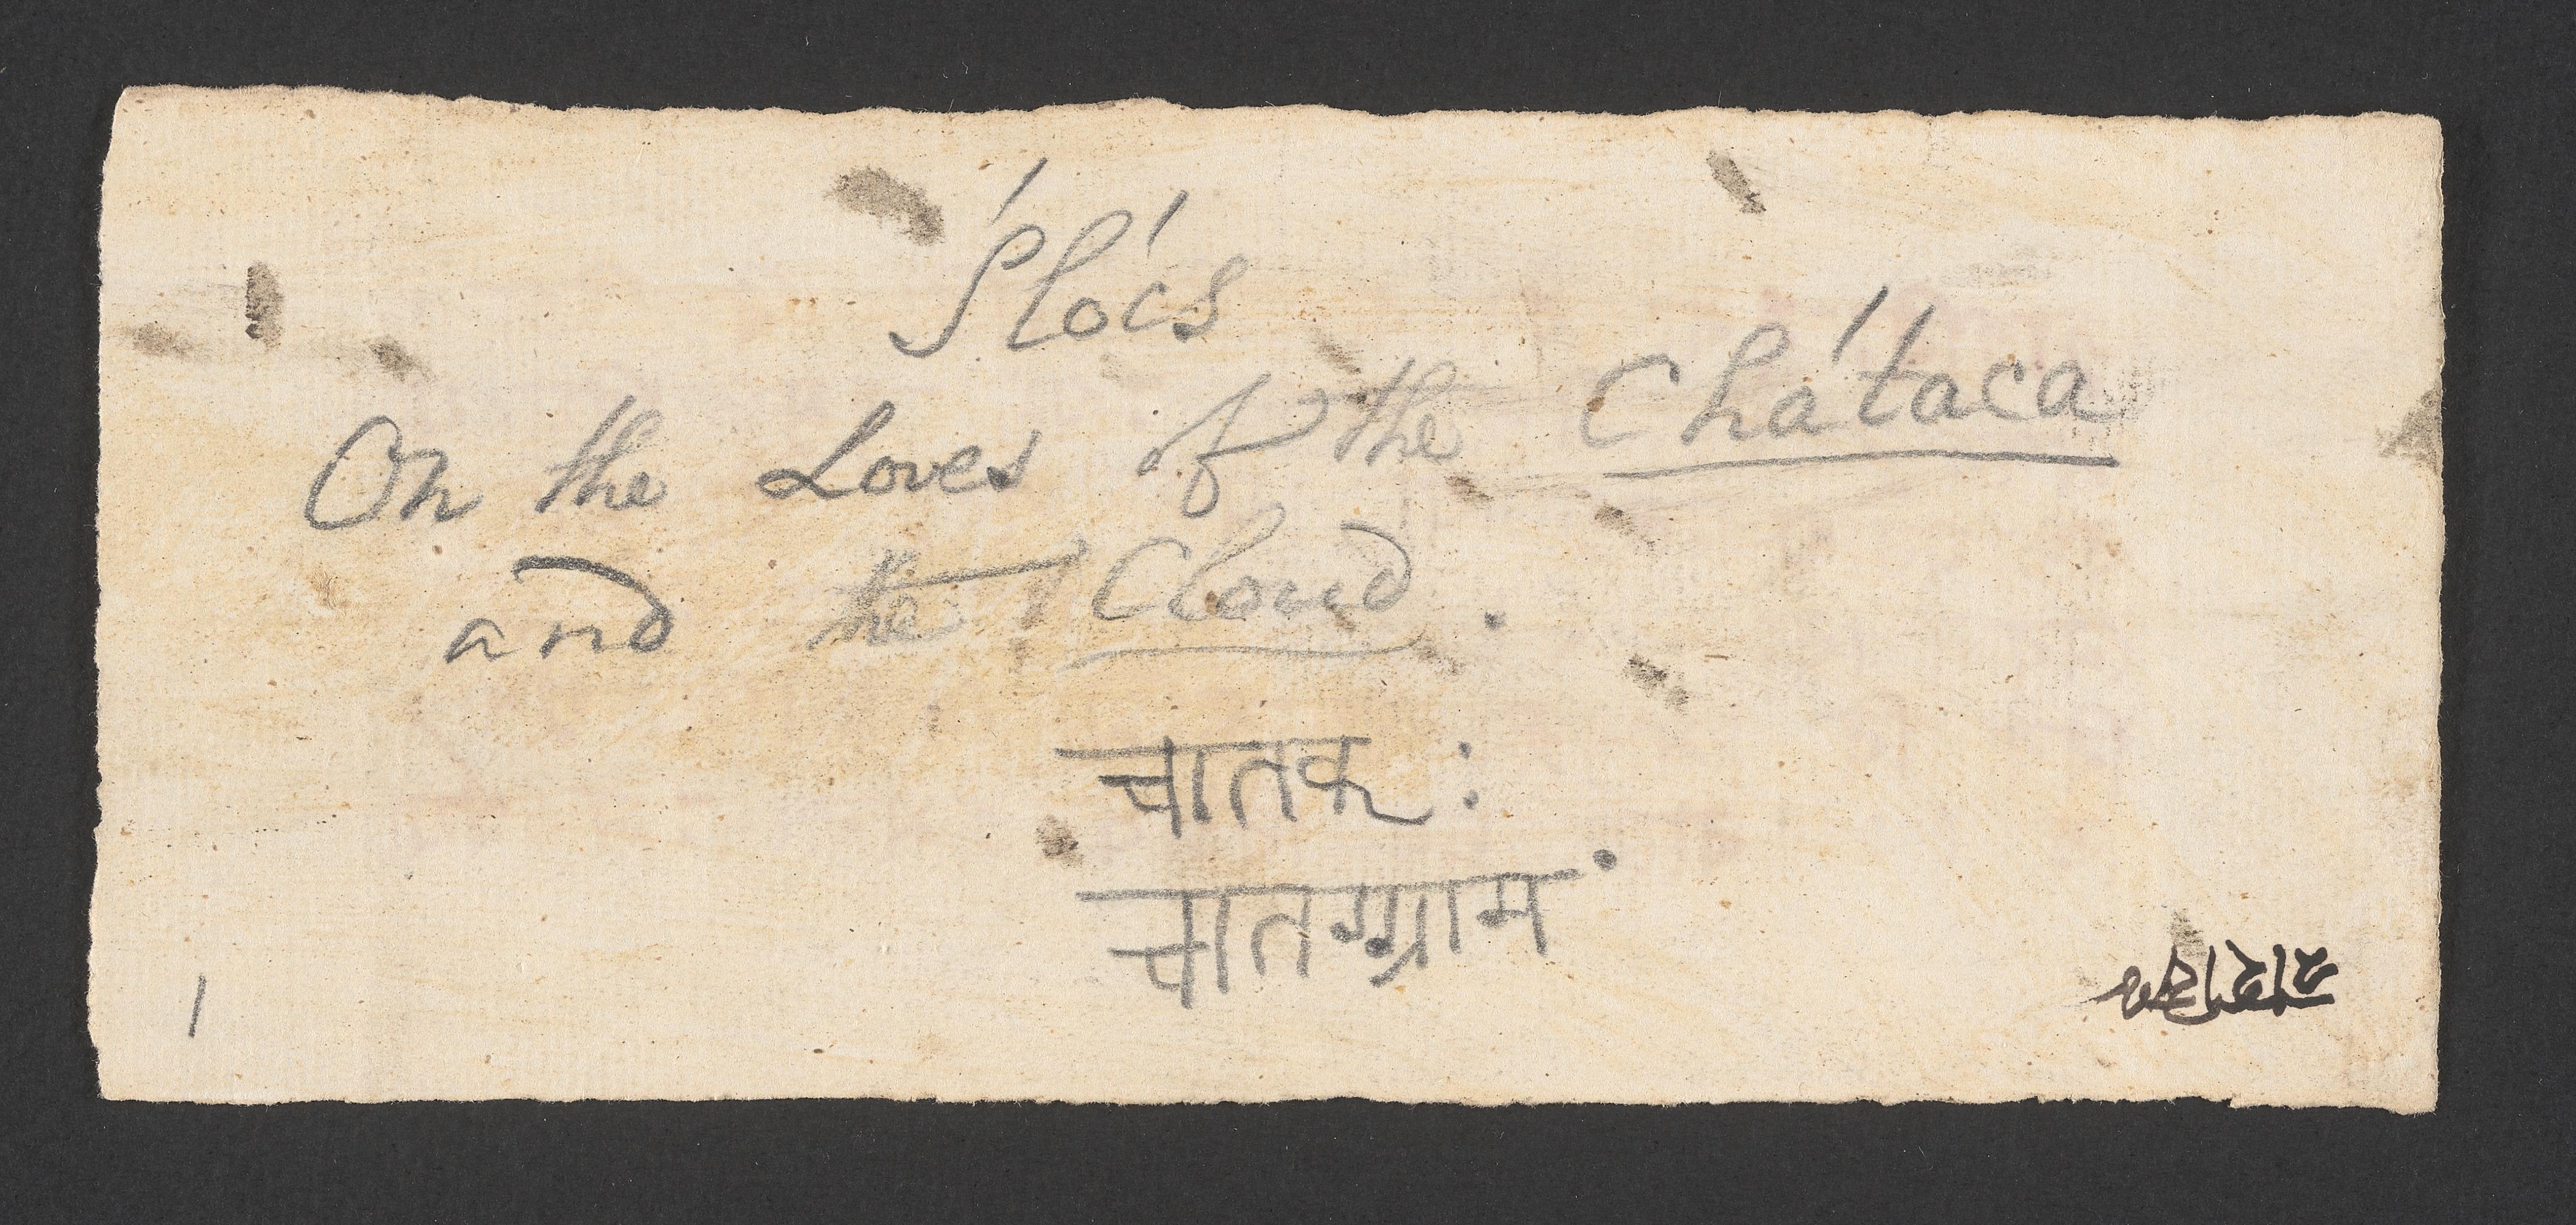 Ślócs
On the Loves of the Chátaca
and the Cloud.
चातकः
चातग्ग्रामं
1